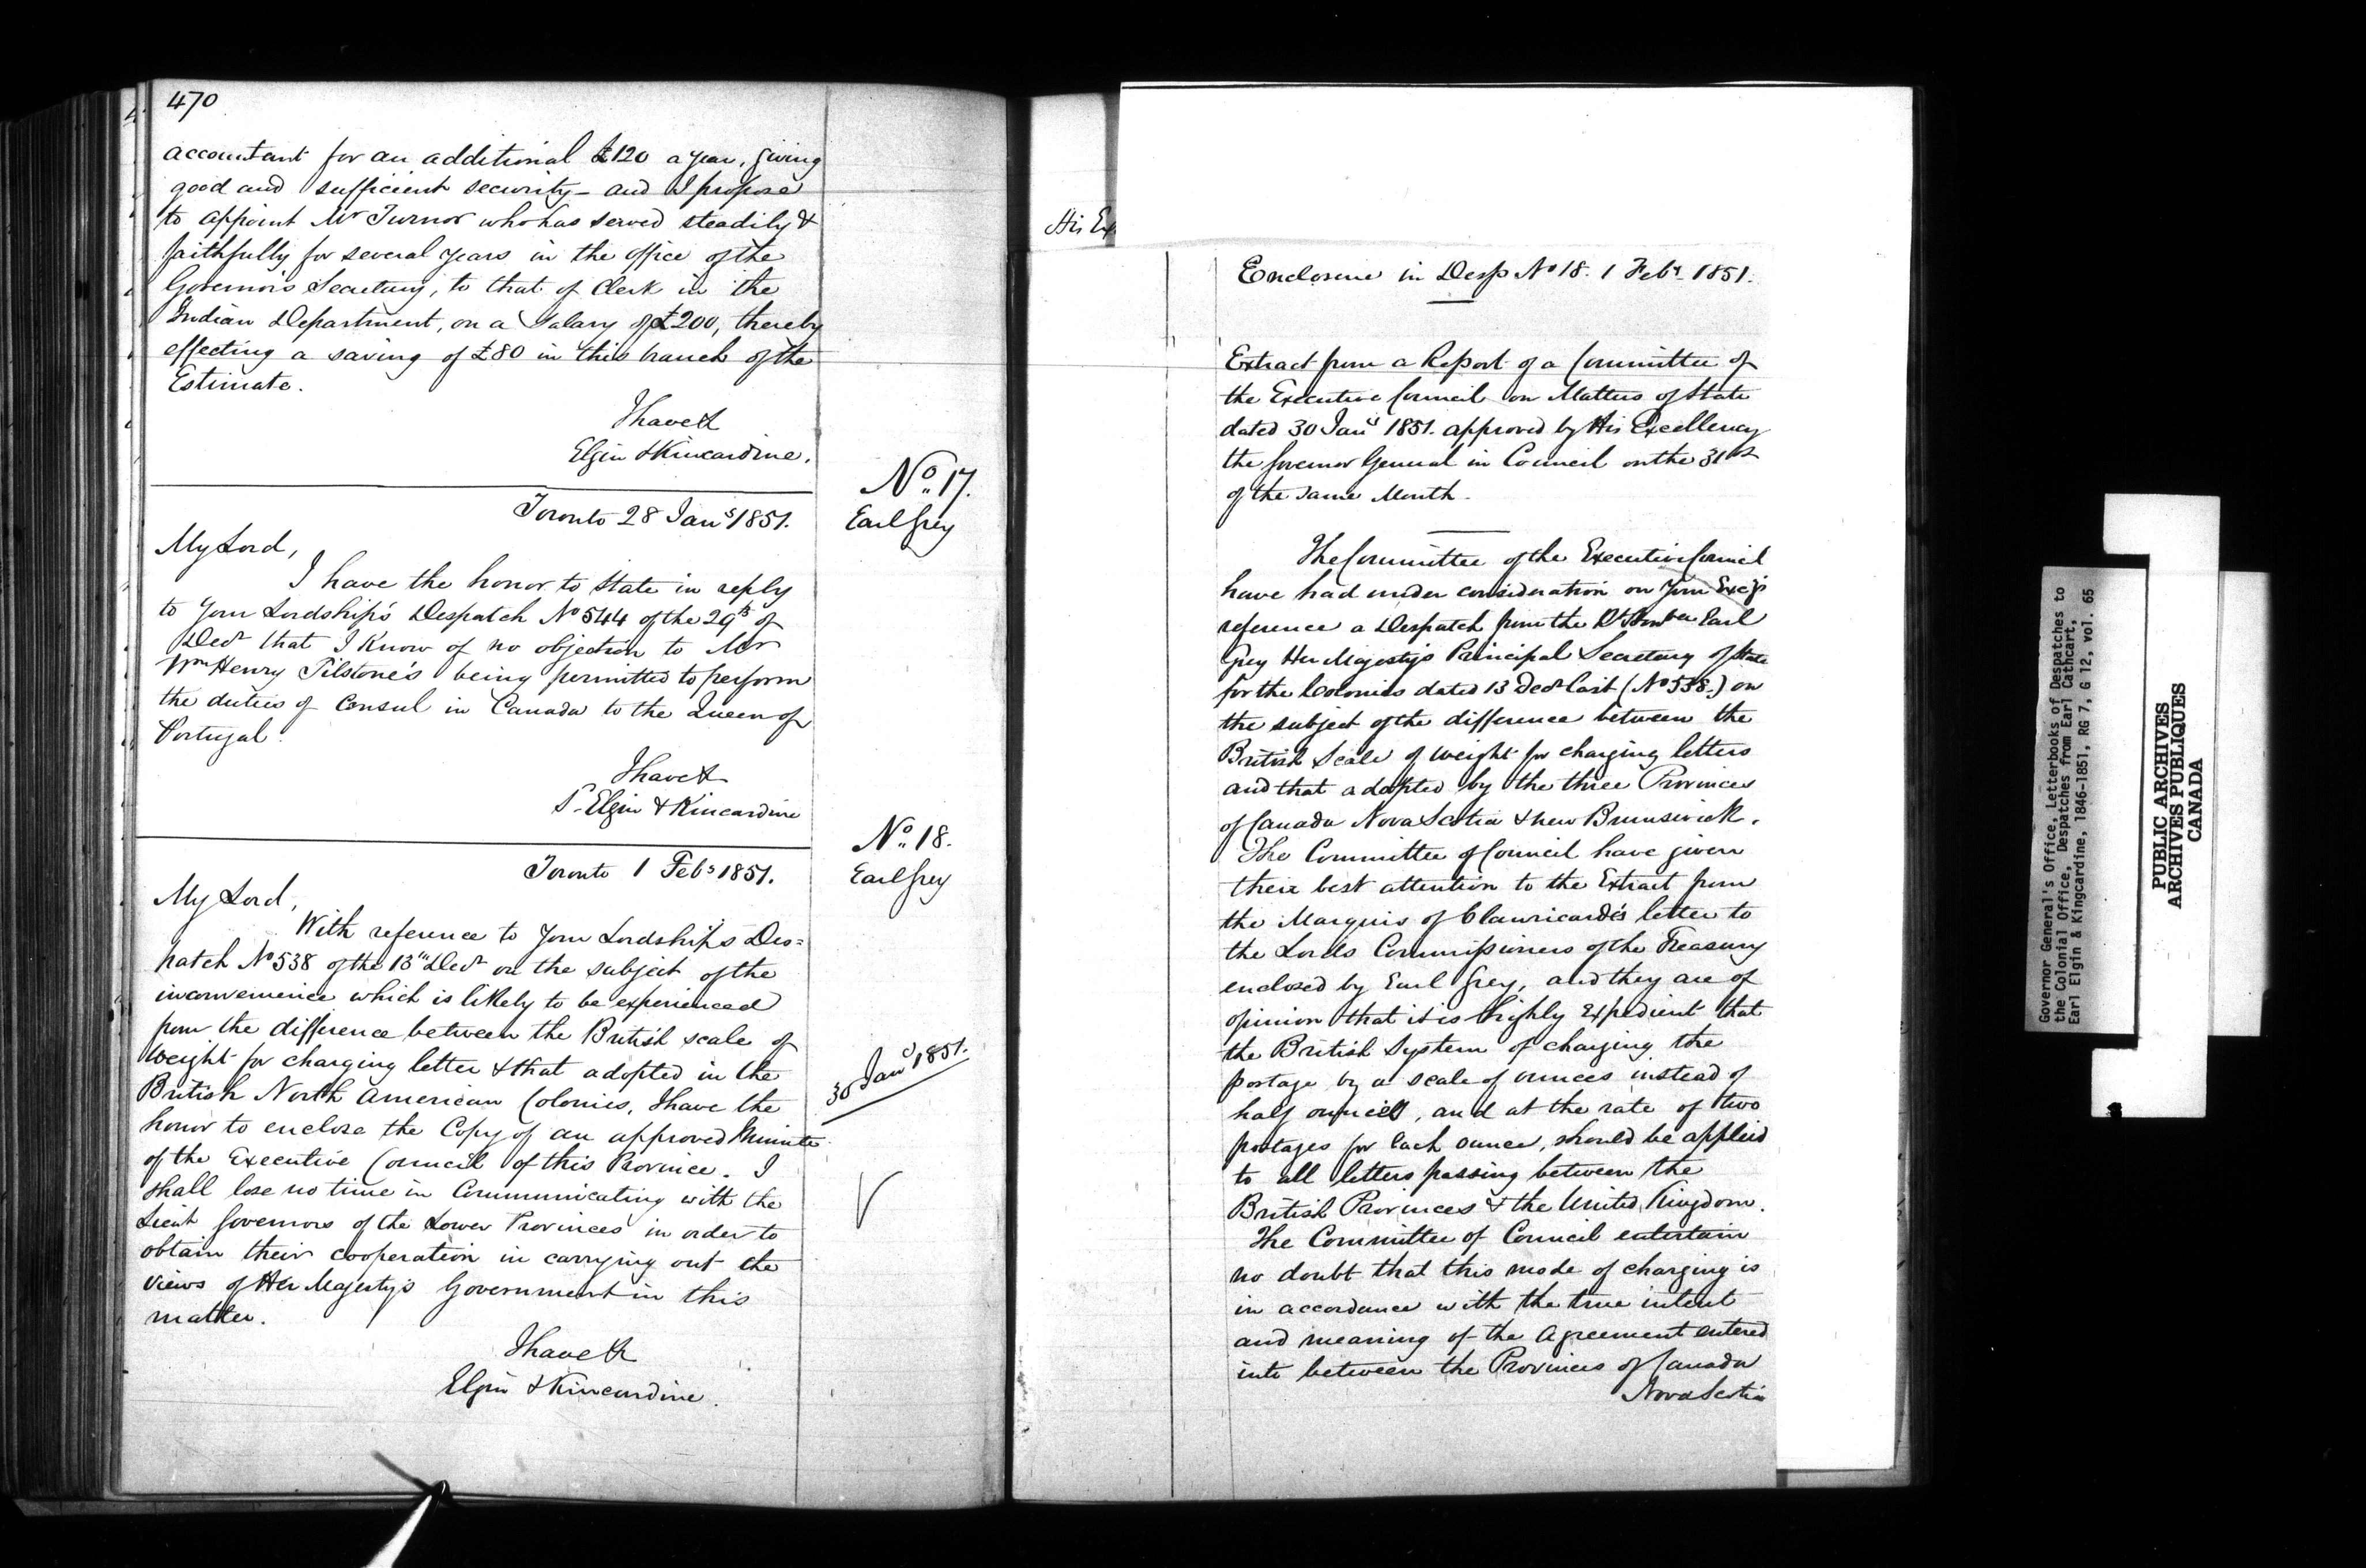 470
accountant for an additional £120 a year, giving
good and sufficient security – and I propose
to appoint Mr Turnor who has served steadily &
faithfully for several years in the office of the
Governor's Secretary, to that of Clerk in the
Indian Department, on a Salary of £200, thereby
effecting a saving of £80 in this branch of the
Estimate.
I have &
Elgin & Kincardine.
No. 17.
Earl Grey
Toronto 28 Jany 1851.
My Lord,
I have the honor to state in reply
to Your Lordship's Despatch No 544 of the 29th of
Decr that I know of no objection to Mr
Wm Henry Tilstone's being permitted to perform
the duties of Consul in Canada to the Queen of
Portugal.
I have &
Elgin & Kincardine
No. 18.
Earl Grey
Toronto 1 Feby 1851.
My Lord,
With reference to Your Lordship's Des=
patch No 538 of the 13th Decr on the subject of the
inconvenience which is likely to be experienced
from the difference between the British scale of
weight for charging letter & that adopted in the
British North American Colonies, I have the
honor to enclose the Copy of an approved Minute
30 Jany 1851.
of the Executive Council of this Province. I
shall lose no time in Communicating with the
Lieut Governors of the Lower Provinces in order to
obtain their cooperation in carrying out the
views of Her Majesty's Government in this
matter.
I have &
Elgin & Kincardine.
His Ex
Enclosure in Desp No 18. 1 Feby 1851.
Extract from a Report of a Committee of
the Executive Council on Matters of State
dated 30 Jany 1851. approved by His Excellency
the Governor General in Council on the 31st
of the same Month.
The Committee of the Executive Council
have had under consideration on Your Excy's
reference a Despatch from the Rt Honble Earl
Grey Her Majesty's Principal Secretary of State
for the Colonies dated 13 Decr last (No 538.) on
the subject of the difference between the
British Scale of weight for charging letters
and that adopted by the three Provinces
of Canada Nova Scotia & New Brunswick.
The Committee of Council have given
their best attention to the Extract from
the Marquis of Clanricarde's letter to
the Lords Commissioners of the Treasury
enclosed by Earl Grey, and they are of
opinion that it is highly expedient that
the British System of charging the
postage by a scale of ounces instead of
half ounces, and at the rate of two
postages for each ounce, should be applied
to all letters passing between the
British Provinces & the United Kingdom.
The Committee of Council entertain
no doubt that this mode of charging is
in accordance with the true intent
and meaning of the Agreement entered
into between the Provinces of Canada
Nova Scotia
Governor General's Office, Letterbooks of Despatches to
the Colonial Office, Despatches from Earl Cathcart,
Earl Elgin & Kingcardine, 1846-1851, RG 7, G 12, vol. 65
PUBLIC ARCHIVES
ARCHIVES PUBLIQUES
CANADA